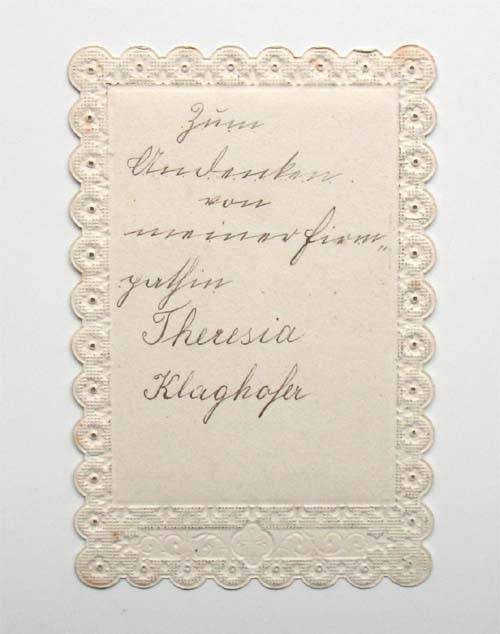 Zum
Andenken
von
meiner Firm„
pathin
Theresia
Klaghofer